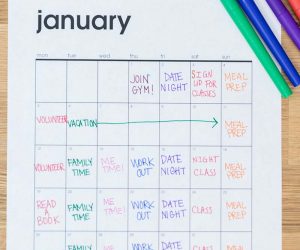 january
mon tue wed thu fri sat sun
JOIN GYM!
DATE NIGHT
SIGN UP FOR CLASSES
MEAL PREP
VOLUNTEER
VACATION
MEAL PREP
VOLUNTEER
FAMILY TIME
ME TIME!
WORK OUT
DATE NIGHT
NIGHT CLASS
MEAL PREP
READ A BOOK
FAMILY TIME
ME TIME!
WORK OUT
DATE NIGHT
CLASS
MEAL PREP